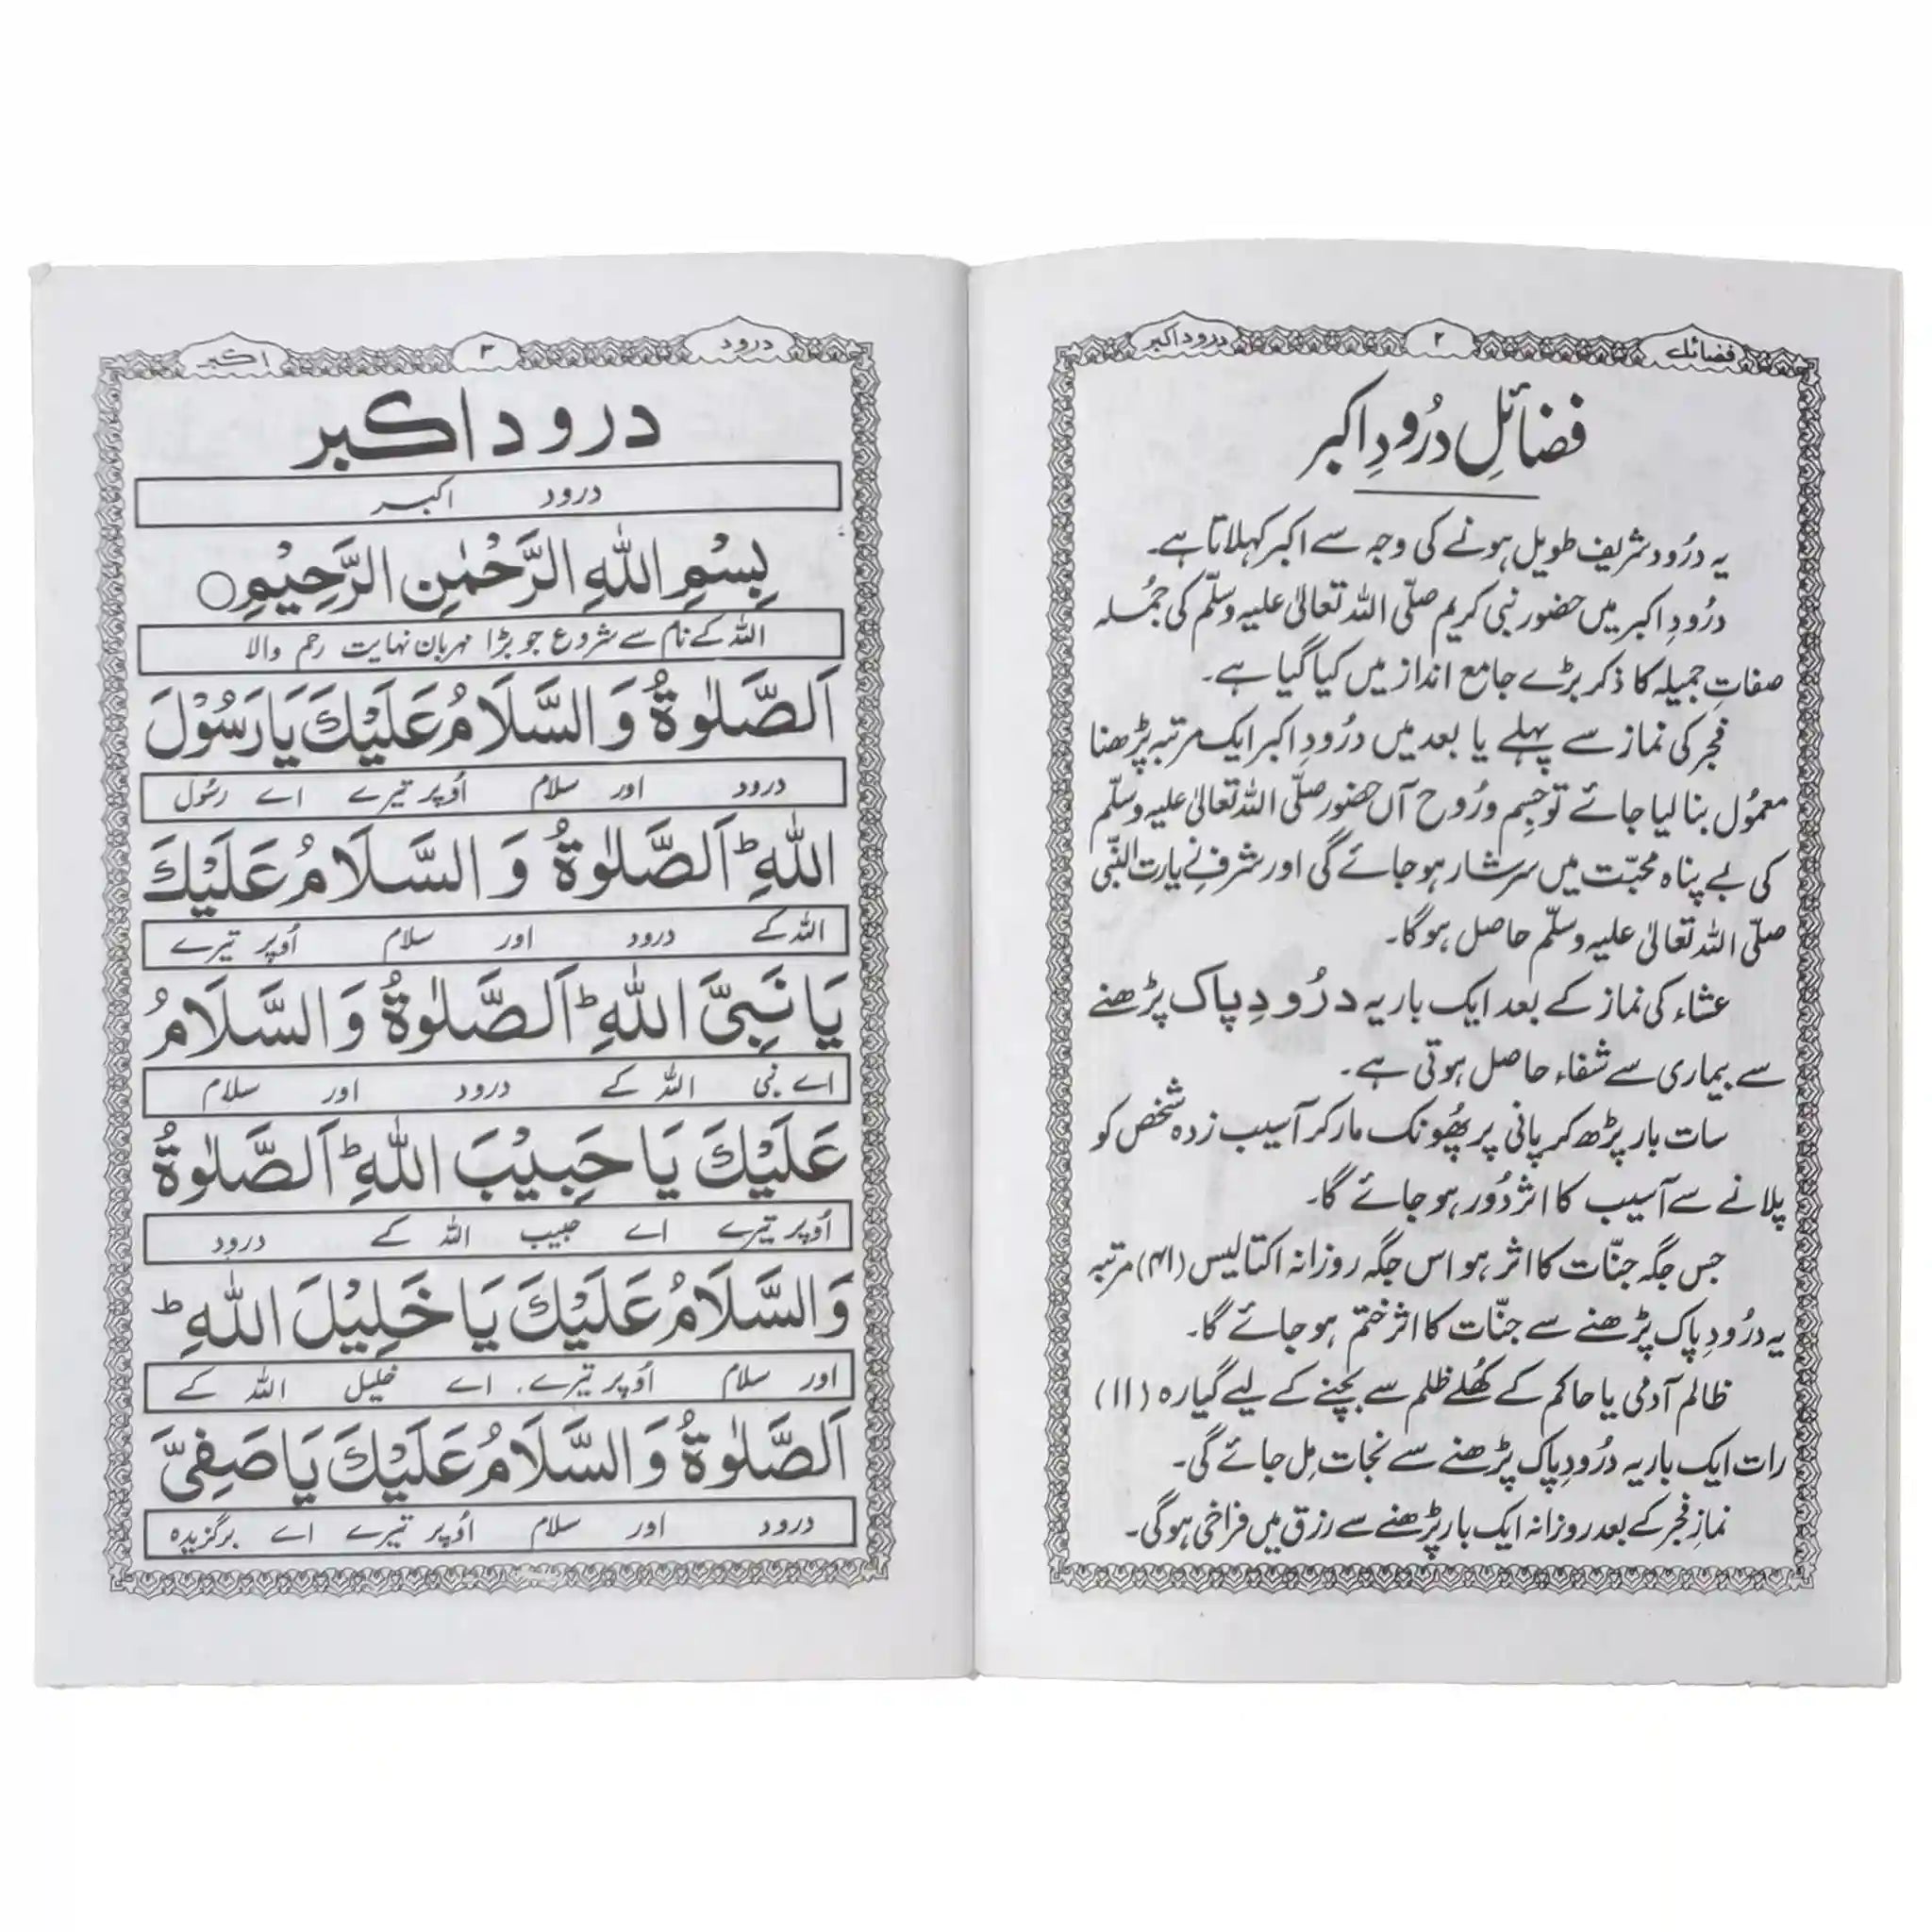 فضائل ۲ درود اکبر
فضائلِ درُودِ اکبر
یہ درُود شریف طویل ہونے کی وجہ سے اکبر کہلاتا ہے۔
درُودِ اکبر میں حضور نبی کریم صلّی اللہ تعالیٰ علیہ وسلّم کی جُملہ
صفاتِ جمیلہ کا ذکر بڑے جامع انداز میں کیا گیا ہے۔
فجر کی نماز سے پہلے یا بعد میں درُودِ اکبر ایک مرتبہ پڑھنا
معمُول بنا لیا جائے تو جسم و رُوح آں حضور صلّی اللہ تعالیٰ علیہ وسلّم
کی بے پناہ محبّت میں سرشار ہو جائے گی اور شرفِ زیارت النّبی
صلّی اللہ تعالیٰ علیہ وسلّم حاصل ہوگا۔
عشاء کی نماز کے بعد ایک بار یہ درُودِ پاک پڑھنے
سے بیماری سے شفاء حاصل ہوتی ہے۔
سات بار پڑھ کر پانی پر پھُونک مار کر آسیب زدہ شخص کو
پلانے سے آسیب کا اثر دُور ہو جائے گا۔
جس جگہ جنّات کا اثر ہو اس جگہ روزانہ اکتالیس (۴۱) مرتبہ
یہ درُودِ پاک پڑھنے سے جنّات کا اثر ختم ہو جائے گا۔
ظالم آدمی یا حاکم کے کھُلے ظلم سے بچنے کے لیے گیارہ (۱۱)
رات ایک بار یہ درُودِ پاک پڑھنے سے نجات مِل جائے گی۔
نمازِ فجر کے بعد روزانہ ایک بار پڑھنے سے رزق میں فراخی ہوگی۔
درود ۳ اکبر
درود اکبر
درود اکبر
بِسْمِ اللّٰهِ الرَّحْمٰنِ الرَّحِيْمِ ○
اللہ کے نام سے شروع جو بڑا مہربان نہایت رحم والا
اَلصَّلٰوةُ وَالسَّلَامُ عَلَيْكَ يَا رَسُوْلَ
درود اور سلام اُوپر تیرے اے رسُول
اللّٰهِ ؕ اَلصَّلٰوةُ وَالسَّلَامُ عَلَيْكَ
اللہ کے درود اور سلام اُوپر تیرے
يَا نَبِيَّ اللّٰهِ ؕ اَلصَّلٰوةُ وَالسَّلَامُ
اے نبی اللہ کے درود اور سلام
عَلَيْكَ يَا حَبِيْبَ اللّٰهِ ؕ اَلصَّلٰوةُ
اُوپر تیرے اے حبیب اللہ کے درود
وَالسَّلَامُ عَلَيْكَ يَا خَلِيْلَ اللّٰهِ ؕ
اور سلام اُوپر تیرے اے خلیل اللہ کے
اَلصَّلٰوةُ وَالسَّلَامُ عَلَيْكَ يَا صَفِيَّ
درود اور سلام اُوپر تیرے اے برگزیدہ